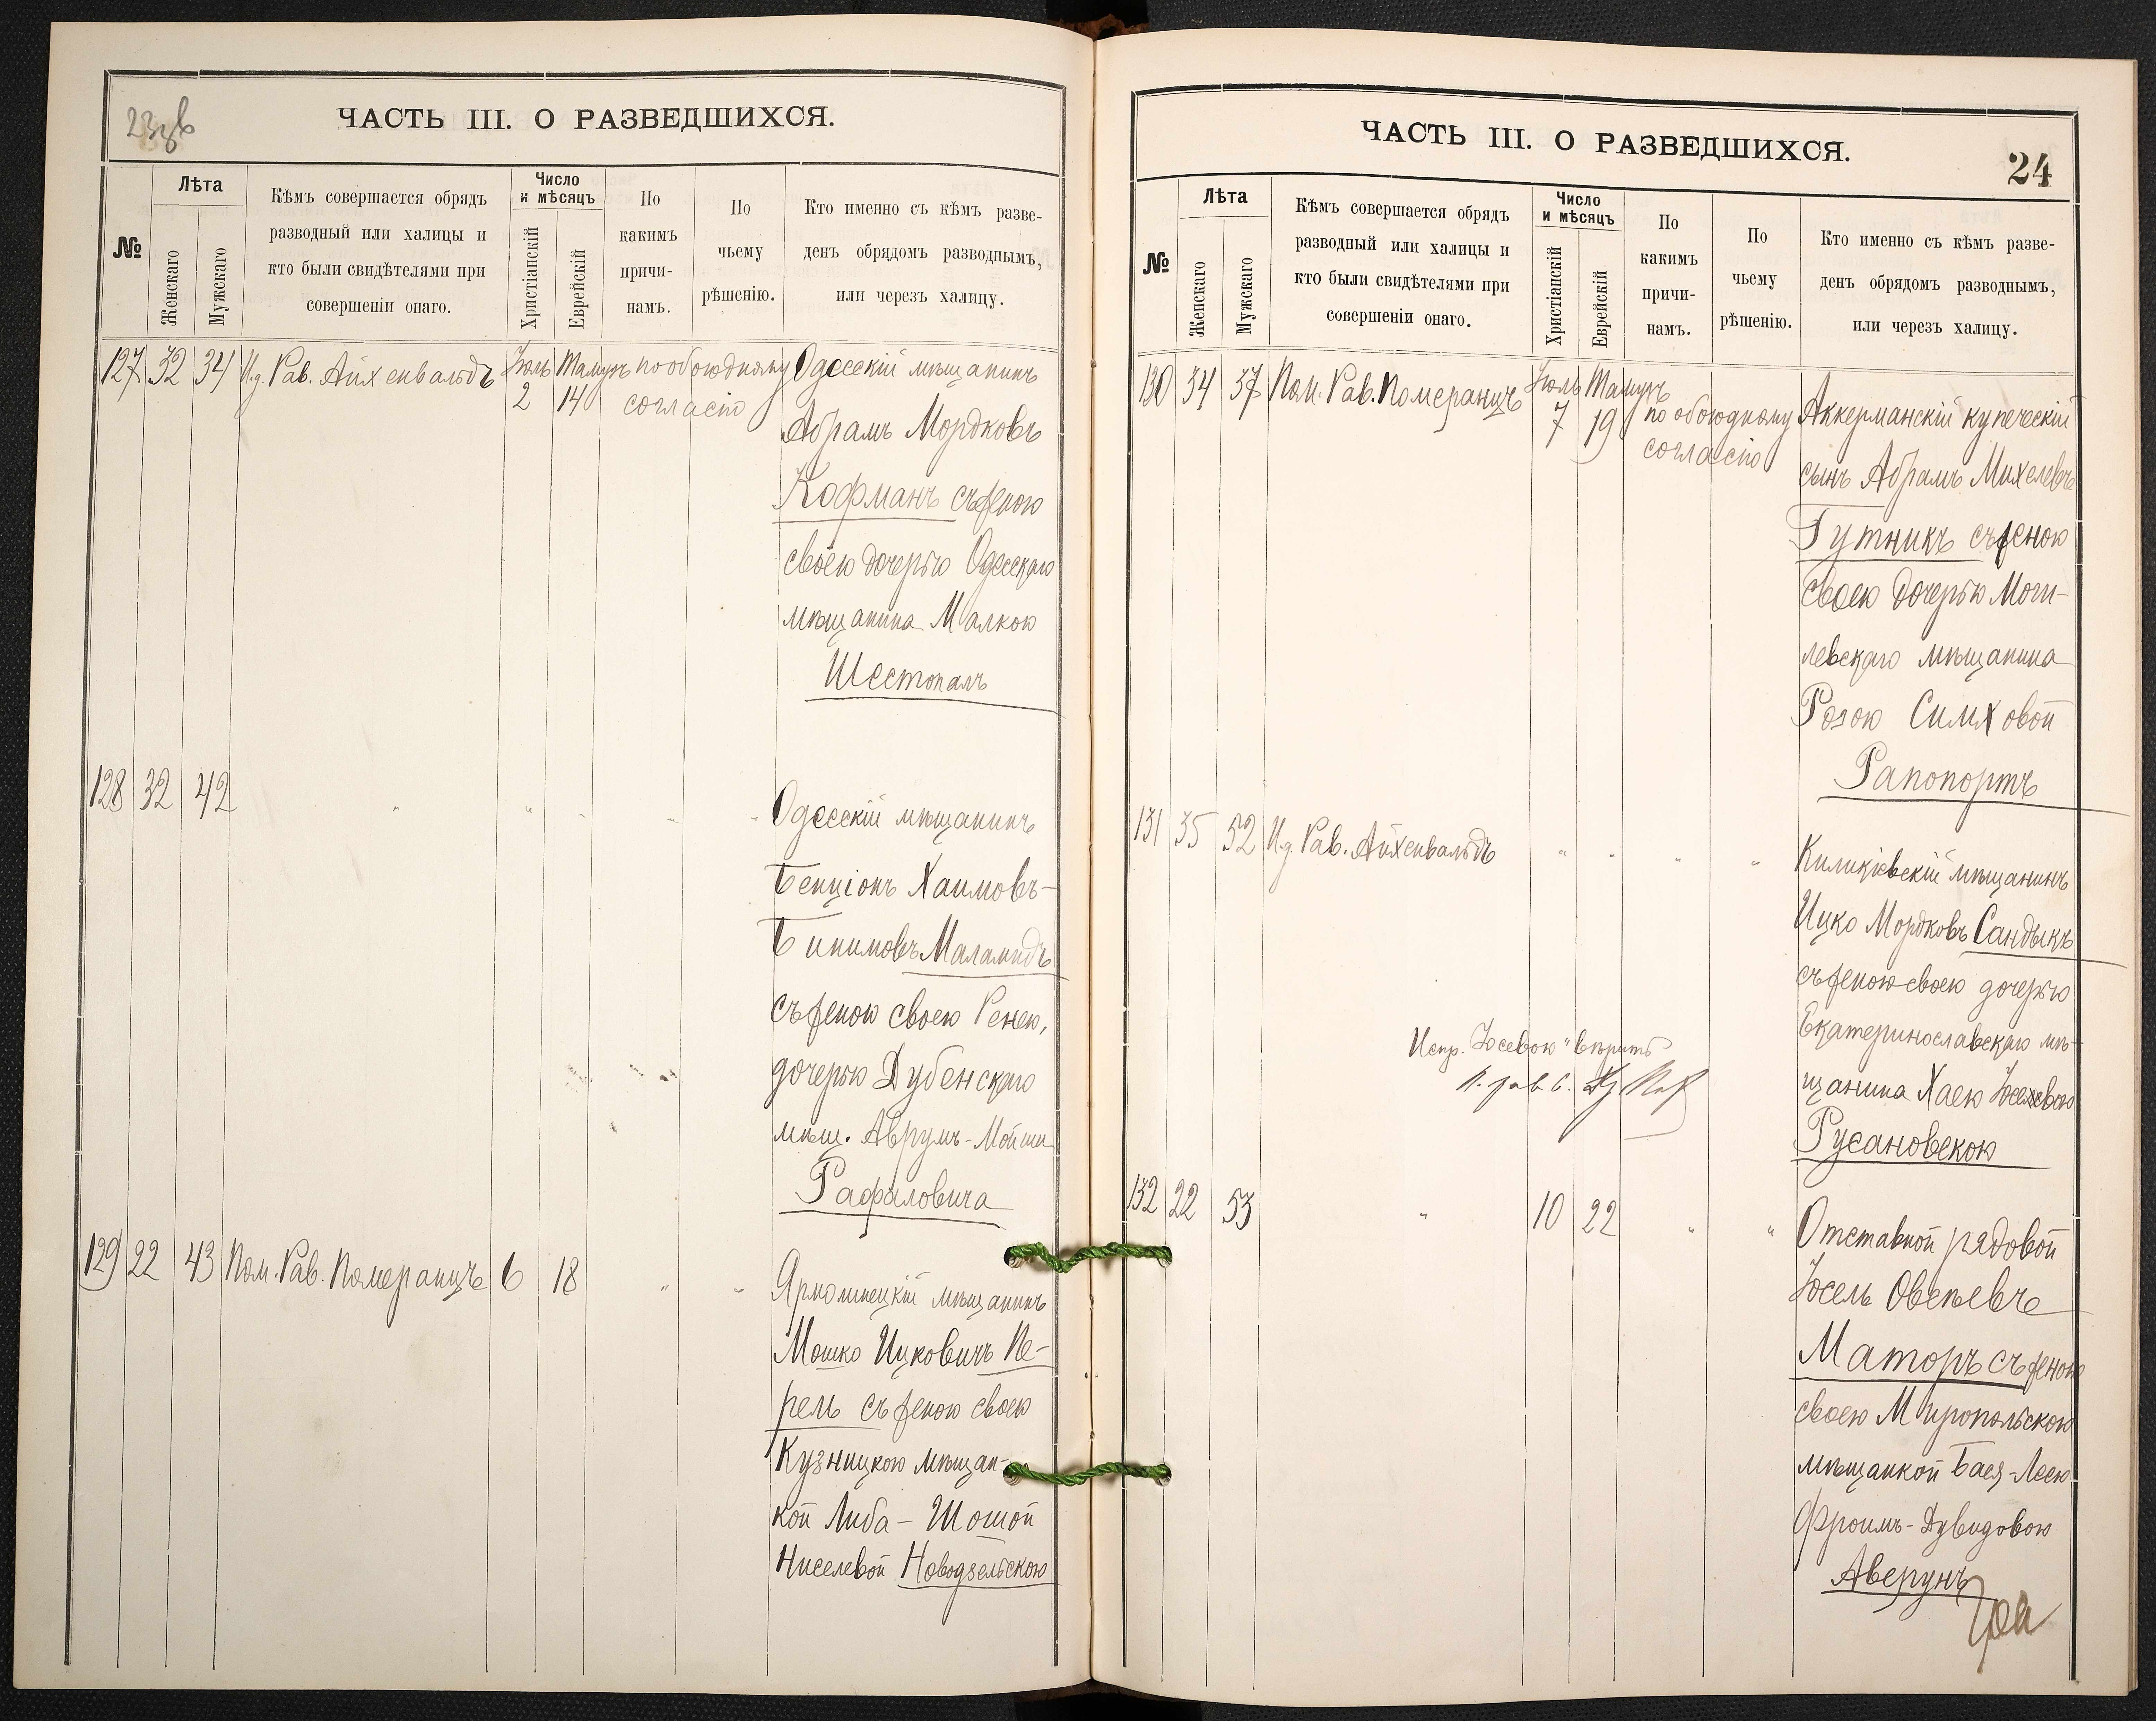 ЧАСТЬ III. О РАЗВЕДШИХСЯ.
№
Лѣта
Женскаго
Мужскаго
Кѣмъ совершается обрядъ
разводный или халицы и
кто были свидѣтелями при
совершеніи онаго.
Число
и мѣсяцъ
Христіанскій
Еврейскій
По
какимъ
причи-
намъ.
По
чьему
рѣшенію.
Кто именно съ кѣмъ разве-
денъ обрядомъ разводнымъ,
или черезъ халицу.
127 32 34 И.д. Рав. Айхенвальдъ Іюль Тамузъ по обоюдному Одесскій мѣщанинъ
2 14 согласію
Абрамъ Мордковъ
Кофманъ съ женою
своею дочерью Одесскаго
мѣщанина Малкою
Шестопалъ
128 32 42 " " " " " Одесскій мѣщанинъ
Бенціонъ Хаимовъ-
Бинимовъ Маламидъ
съ женою своею Ренею,
дочерью Дубенскаго
мѣщ. Аврумъ-Мойши
Рафаловича
129 22 43 Пом. Рав. Померанцъ 6 18 " " Ярмолинецкій мѣщанинъ
Мошко Ицковичъ Пе-
рель съ женою своею
Кузницкою мѣщан-
кой Либа-Шошой
Ниселевой Новодзельскою
ЧАСТЬ III. О РАЗВЕДШИХСЯ.
24
№
Лѣта
Женскаго
Мужскаго
Кѣмъ совершается обрядъ
разводный или халицы и
кто были свидѣтелями при
совершеніи онаго.
Число
и мѣсяцъ
Христіанскій
Еврейскій
По
какимъ
причи-
намъ.
По
чьему
рѣшенію.
Кто именно съ кѣмъ разве-
денъ обрядомъ разводнымъ,
или черезъ халицу.
130 34 37 Пом. Рав. Померанцъ Іюль Тамузъ
7 19 по обоюдному Аккерманскій купеческій
согласію
сынъ Абрамъ Михелевъ
Гутникъ съ женою
своею дочерью Моги-
левскаго мѣщанина
Розою Симховой
Рапопортъ
131 35 52 И.д. Рав. Айхенвальдъ " " " " Киликіевскій мѣщанинъ
Ицко Мордковъ Сандыкъ
съ женою своею дочерью
Екатеринославскаго мѣ-
щанина Хаею Іосевою
Русановскою
Испр. "Іосевою" вѣрить
132 22 53 " 10 22 " " Отставной рядовой
Іосель Овсеевъ
Маторъ съ женою
своею Миропольскою
мѣщанкой Бася-Леею
Фроимъ-Дувидовою
Аверунъ